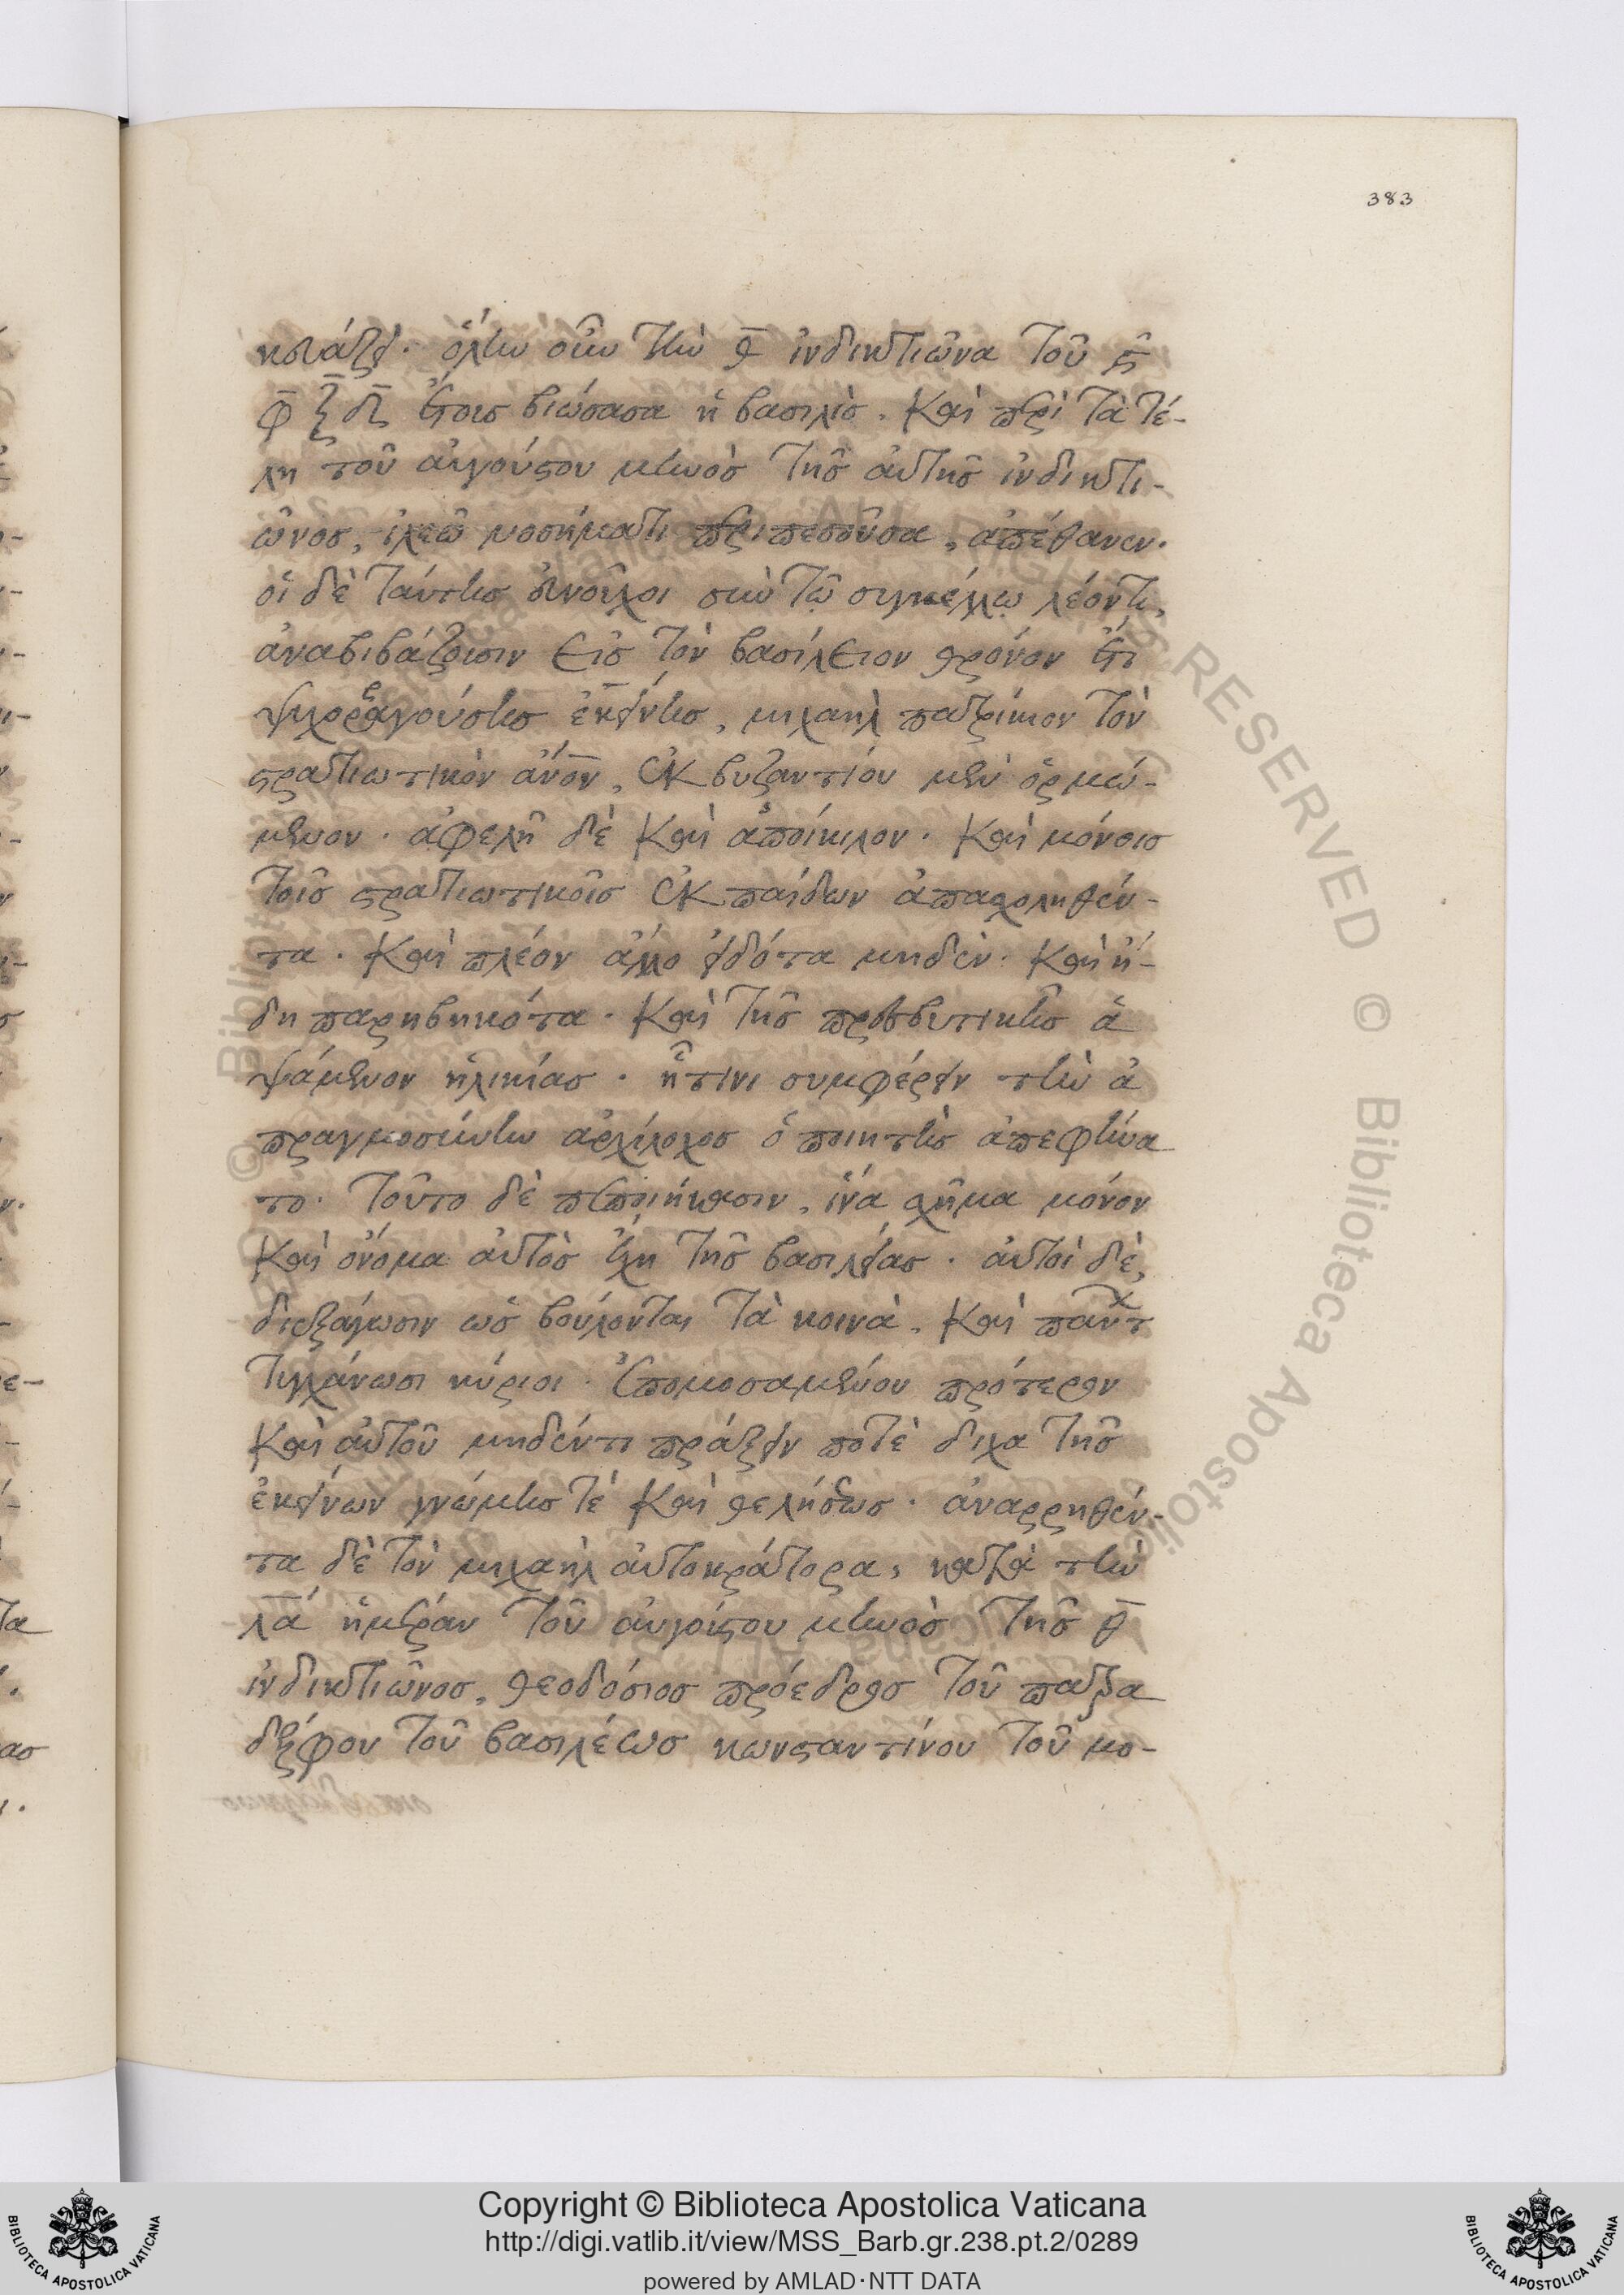 383
κουάξει. ὅλην οὖν τὴν θ ἰνδικτιῶνα τοῦ ϛ
φ ξ δ ἔτους βιώσασα ἡ βασιλὶς. καὶ περὶ τὰ τέ-
λη τοῦ αὐγούστου μηνὸς τῆς αὐτῆς ἰνδικτι-
ῶνος, ἰλεῶ νοσήματι περιπεσοῦσα, ἀπέθανεν.
οἱ δὲ ταύτης εὐνοῦχοι σὺν τῶ συγκέλλω λέοντι,
ἀναβιβάζουσιν εἰς τὸν βασίλειον θρόνον ἔτι
ψυχορραγούσης ἐκείνης, μιχαὴλ πατρίκιον τὸν
στρατιωτικὸν ἄνον, ἐκ βυζαντίου μὲν ὁρμώ-
μενον. ἀφελῆ δὲ καὶ ἀποίκιλον. καὶ μόνοις
τοῖς στρατιωτικοῖς ἐκ παίδων ἀπασχοληθέν-
τα. καὶ πλέον ἄλλο εἰδότα μηδέν. καὶ ἤ-
δη παρηβηκότα. καὶ τῆς πρεσβυτικῆς ἁ
ψάμενον ἡλικίας. ᾗτινι συμφέρειν τὴν ἀ
πραγμοσύνην ἀρχίλοχος ὁ ποιητὴς ἀπεφήνα
το. τοῦτο δὲ πεποιήκασιν, ἵνα σχῆμα μόνον
καὶ ὄνομα αὐτὸς ἔχη τῆς βασιλείας. αὐτοὶ δὲ,
διεξάγωσιν ὡς βούλονται τὰ κοινὰ. καὶ παντ χ
τυγχάνωσι κύριοι. ἐπομοσαμένου πρότερον
καὶ αὐτοῦ μηδέν τι πράξειν ποτὲ διχα τῆς
ἐκείνων γνώμης τέ καὶ θελήσεως. ἀναρρηθέν-
τα δὲ τὸν μιχαὴλ αὐτοκράτορα, κατὰ τὴν
λα ἡμέραν τοῦ αὐγούστου μηνὸς τῆς θ
ἰνδικτιῶνος, θεοδόσιος πρόεδρος τοῦ πατρα
δέλφου τοῦ βασιλέως κωνσταντίνου τοῦ μο-
Copyright © Biblioteca Apostolica Vaticana
http://digi.vatlib.it/view/MSS_Barb.gr.238.pt.2/0289
powered by AMLAD·NTT DATA